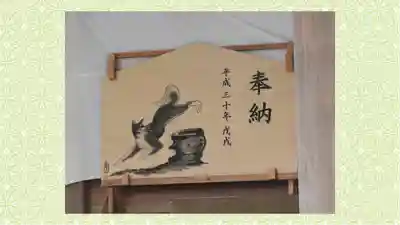 奉納
平成三十年戊戌